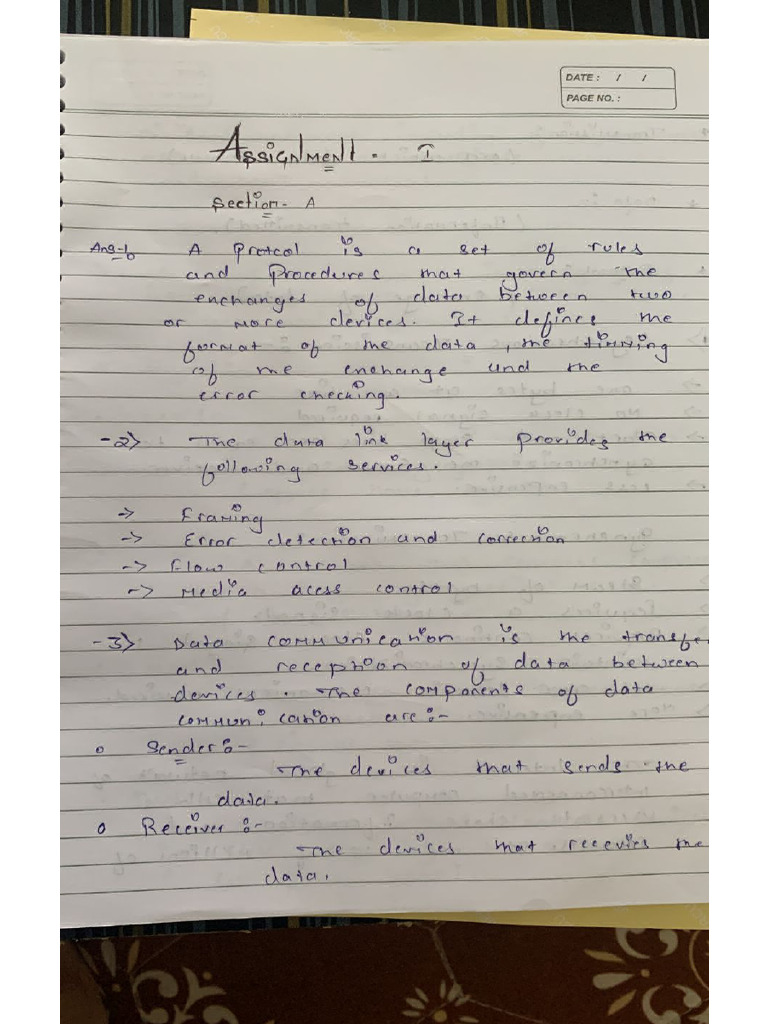 DATE : / /
PAGE NO. :
Assignment - I
Section - A
Ans-1) A Protcol is a set of rules
and Procedures that govern the
enchanges of data between two
or more devices. It defines the
format of the data, the timming
of the enchange and the
error checking.
-2) The data link layer provides the
following services.
-> Framing
-> Error detection and correction
-> Flow control
-> Media acess control
-3) Data communication is the transfe
and reception of data between
devices. The components of data
communication are :-
o Sender :-
The devices that sends the
data.
o Receiver :-
The devices that recevies the
data.